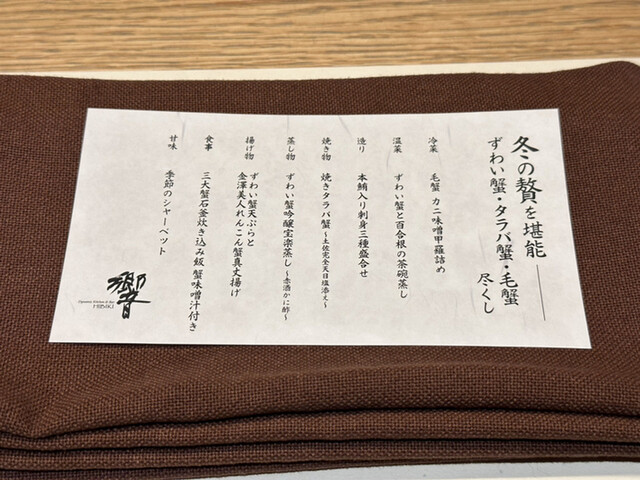 冬の贅を堪能
ずわい蟹・タラバ蟹・毛蟹
尽くし
冷菜 毛蟹 カニ味噌甲羅詰め
温菜 ずわい蟹と百合根の茶碗蒸し
造り 本鮪入り刺身三種盛合せ
焼き物 焼きタラバ蟹 ~土佐完全天日塩添え~
蒸し物 ずわい蟹吟醸宝楽蒸し ~赤酒かに酢~
揚げ物 ずわい蟹天ぷらと
金澤美人れんこん蟹真丈揚げ
食事 三大蟹石釜炊き込み飯 蟹味噌汁付き
甘味 季節のシャーベット
響
Japanese Kitchen & Bar
HIBIKI